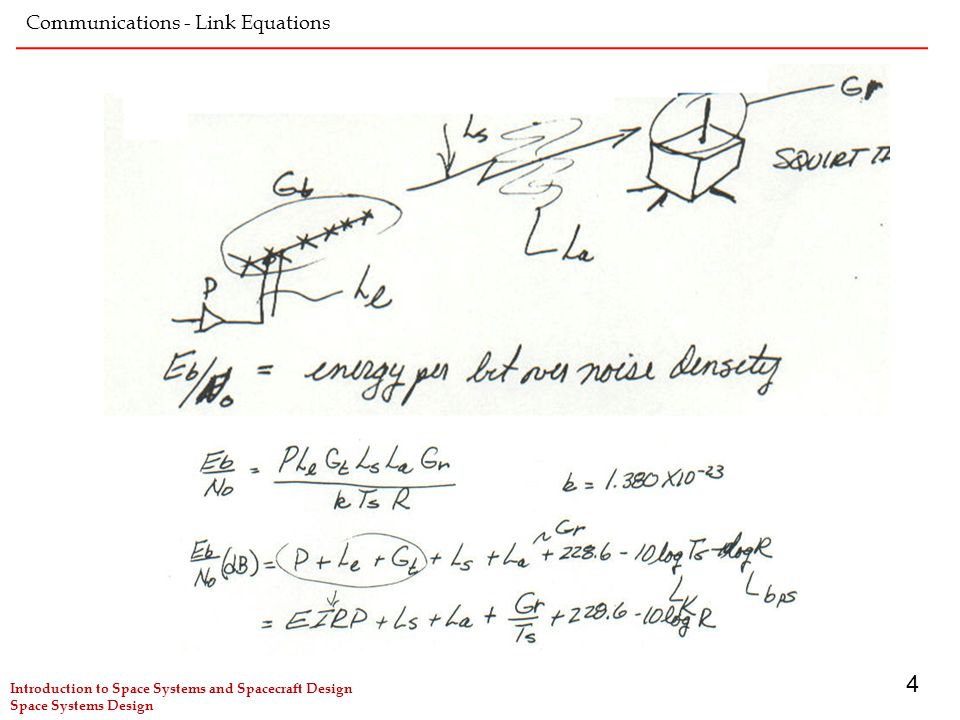 Communications - Link Equations
Gr
Ls
SQUIRT II
Gt
La
P
Le
Eb/No = energy per bit over noise density
Eb/No = P Le Gt Ls La Gr / k Ts R
k = 1.380 X10^-23
Gr
Eb/No (dB) = P + Le + Gt + Ls + La + 228.6 - 10 log Ts - 10 log R
K
bps
= EIRP + Ls + La + Gr/Ts + 228.6 - 10 log R
Introduction to Space Systems and Spacecraft Design
Space Systems Design
4